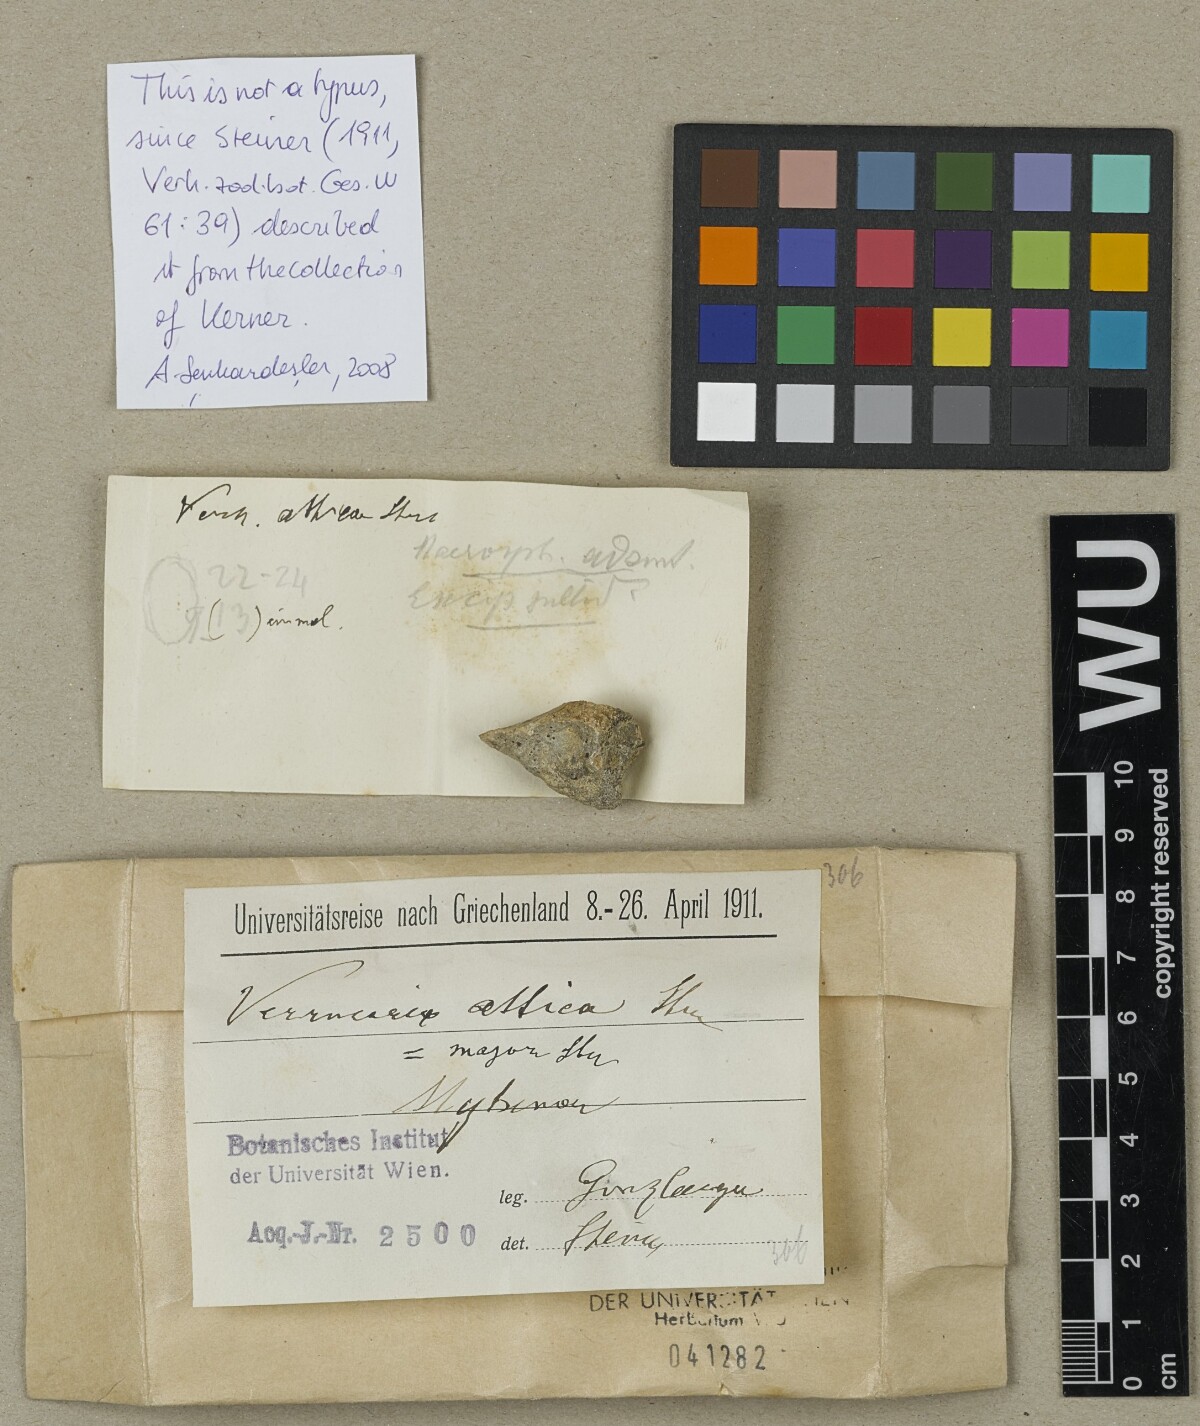 This is not a typus,
since Steiner (1911,
Verh. zool. bot. Ges. W
61:39) described
it from the collection
of Kerner.
A. Şenkardeşler, 2008
Verr. attica Stnr
22-24
(13) einmal.
Excip
306
Universitätsreise nach Griechenland 8.-26. April 1911.
Verrucaria attica Stnr
= major Stnr
Botanisches Institut
der Universität Wien.
Acq.-J.-Nr. 2500
leg. Ginzberger
det. Steiner
306
DER UNIVERSITÄT WIEN
Herbarium WU
041282
WU
copyright reserved
10
9
8
7
6
5
4
3
2
1
0
cm